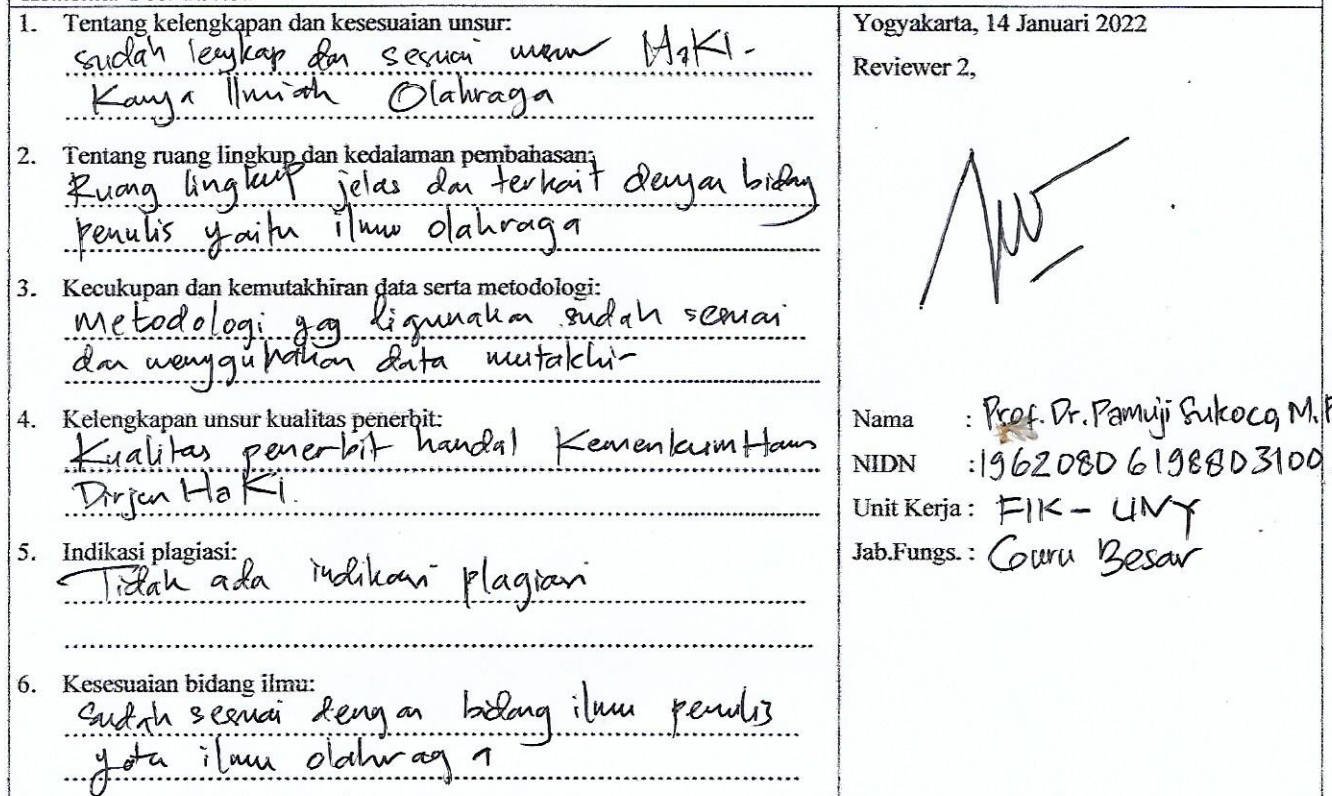 1. Tentang kelengkapan dan kesesuaian unsur:
sudah lengkap dan sesuai unsur HaKI-
Karya Ilmiah Olahraga
2. Tentang ruang lingkup dan kedalaman pembahasan:
Ruang lingkup jelas dan terkait dengan bidang
penulis yaitu ilmu olahraga
3. Kecukupan dan kemutakhiran data serta metodologi:
Metodologi yg digunakan sudah sesuai
dan menggunakan data mutakhir
4. Kelengkapan unsur kualitas penerbit:
Kualitas penerbit handal KemenkumHam
Dirjen HaKI.
5. Indikasi plagiasi:
Tidak ada indikasi plagiasi
6. Kesesuaian bidang ilmu:
Sudah sesuai dengan bidang ilmu penulis
yaitu ilmu olahraga
Yogyakarta, 14 Januari 2022
Reviewer 2,
Nama : Prof. Dr. Pamuji Sukoco, M.P
NIDN : 19620806198803100
Unit Kerja : FIK - UNY
Jab.Fungs. : Guru Besar